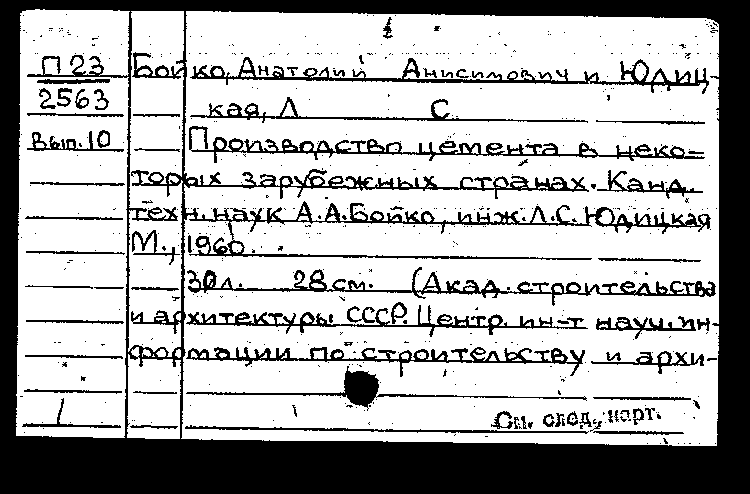 П 23 Бойко, Анатолий Анисимович и Юдиц-
2563 кая, Л С
Вып. 10 Производство цемента в неко-
торых зарубежных странах. Канд.
техн. наук А.А. Бойко, инж. Л.С. Юдицкая
М., 1960.
30 л. 28 см. (Акад. строительства
и архитектуры СССР. Центр. ин-т науч. ин-
формации по строительству и архи-
См. след. карт.